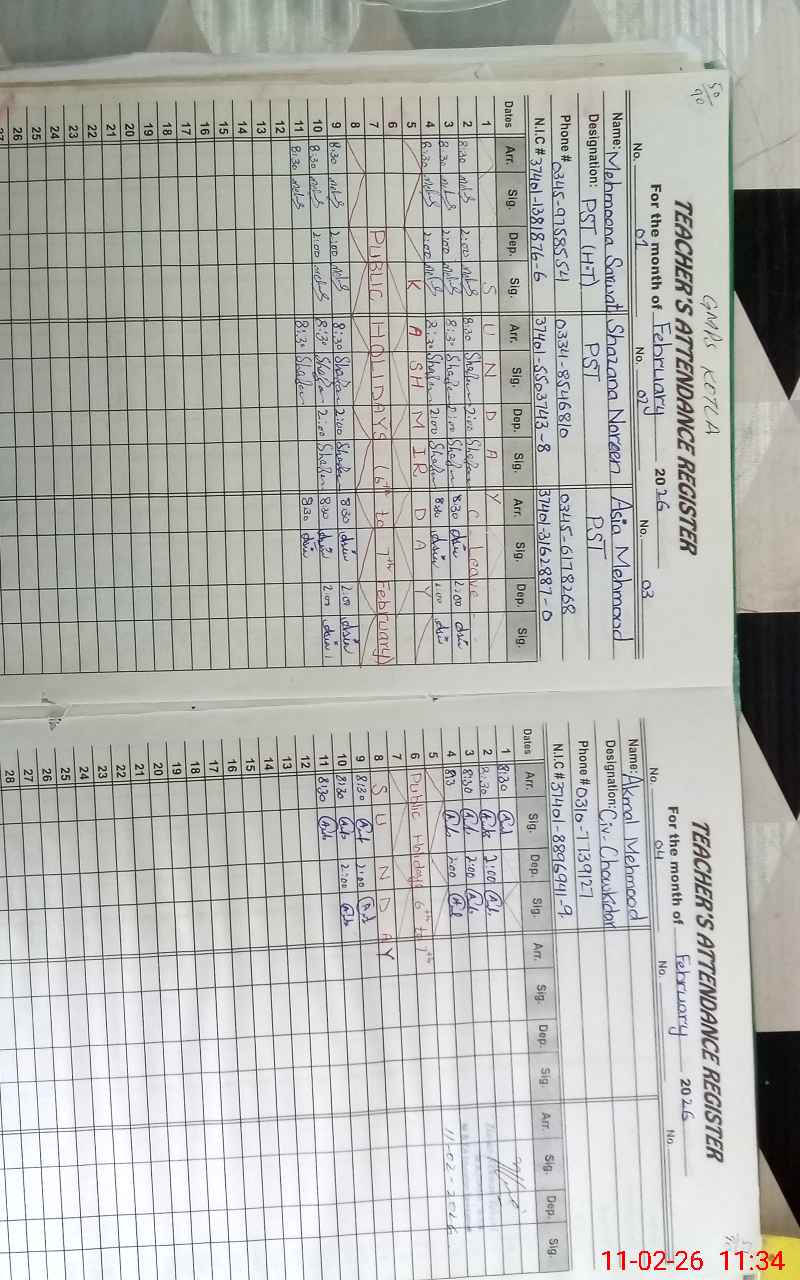 50/90
GMPS KOTLA
TEACHER'S ATTENDANCE REGISTER
For the month of February 2026
No. 01 No. 02 No. 03
Name: Mehmoona Sarwat Shazana Noreen Asia Mehmood
Designation: PST (H.T) PST PST
Phone # 0345-9758554 0334-8546810 0345-6178268
N.I.C # 37401-1381876-6 37401-5503743-8 37401-3162887-0
Dates Arr. Sig. Dep. Sig. Arr. Sig. Dep. Sig. Arr. Sig. Dep. Sig.
1 S U N D A Y
2 8:30 2:00 8:30 2:00 C Leave
3 8:30 2:00 8:30 2:00 8:30 2:00
4 8:30 2:00 8:30 2:00 8:30 2:00
5 K A S H M I R D A Y
6
7 PUBLIC HOLIDAYS (6th to 7th February)
8
9 8:30 2:00 8:30 2:00 8:30 2:00
10 8:30 2:00 8:30 2:00 8:30 2:00
11 8:30 8:30 8:30
12
13
14
15
16
17
18
19
20
21
22
23
24
25
26
27
TEACHER'S ATTENDANCE REGISTER
For the month of February 2026
No. 04 No. No.
Name: Akmal Mehmood
Designation: Civ- Chowkidar
Phone # 0310-7739127
N.I.C # 37401-8896941-9
Dates Arr. Sig. Dep. Sig. Arr. Sig. Dep. Sig. Arr. Sig. Dep. Sig.
1 8:30
2 8:30 2:00
3 8:30 2:00
4 8:3 2:00 11-02-2026
5
6 Public Holidays 6th to 7th
7
8 S U N D A Y
9 8:30 2:00
10 8:30 2:00
11 8:30
12
13
14
15
16
17
18
19
20
21
22
23
24
25
26
27
28
11-02-26 11:34